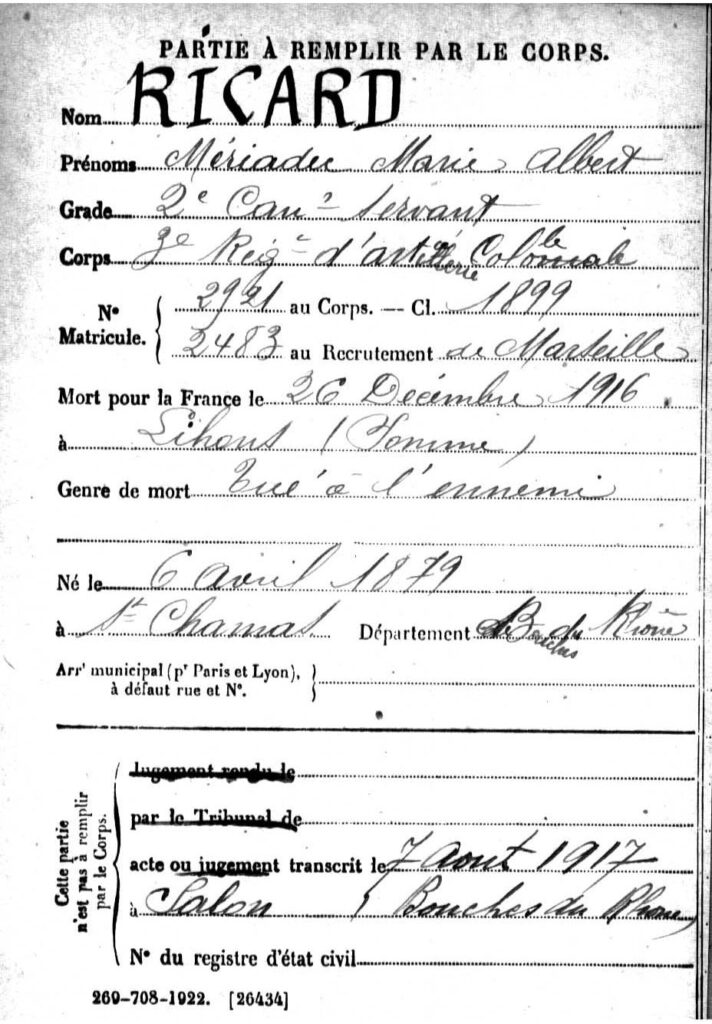 PARTIE À REMPLIR PAR LE CORPS.
Nom RICARD
Prénoms Mériadec Marie Albert
Grade 2e Canr Servant
Corps 3e Régt d'artillerie Coloniale
Nº Matricule. 2921 au Corps. — Cl. 1899
2483 au Recrutement de Marseille
Mort pour la France le 26 Décembre 1916
à Lihons (Somme)
Genre de mort Tué à l'ennemi
Né le 6 Avril 1879
à St Chamas Département Bouches du Rhône
Arrt municipal (pr Paris et Lyon),
à défaut rue et Nº.
Cette partie n'est pas à remplir par le Corps.
Jugement rendu le
par le Tribunal de
acte ou jugement transcrit le 7 Aout 1917
à Salon (Bouches du Rhone)
Nº du registre d'état civil
269-708-1922. [26434]